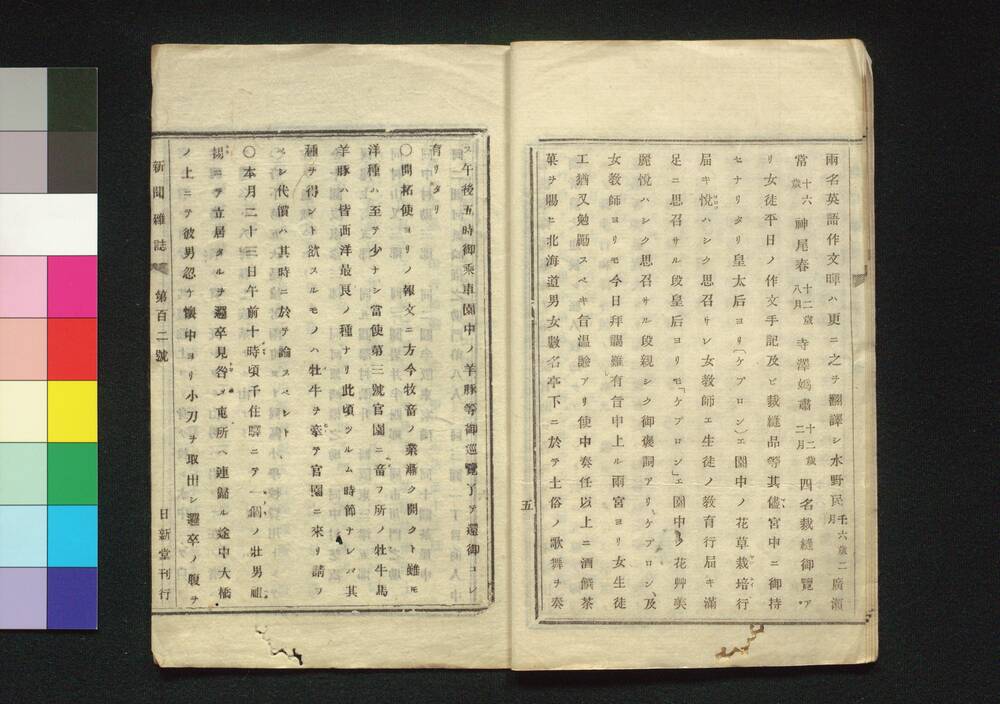 兩名英語作文暉ハ更ニ之ヲ翻譯シ水野民十六歳二月廣瀬
常十六歳神尾春十二歳八月寺澤嫣肅十二歳二月四名裁縫御覽ア
リ女徒平日ノ作文手記及ヒ裁縫品等其儘宮中ニ御持
セナリタリ皇太后ヨリ「ケプロン」エ園中ノ花草栽培行
届キ悅ハシク思召サレ女教師エ生徒ノ教育行届キ滿
足ニ思召サル段皇后ヨリモ「ケプロン」エ園中ノ花艸美
麗悅ハシク思召サル段親シク御褒詞アリ「ケプロン」及
女教師ヨリモ今日拜謁難有旨申上ル兩宮ヨリ女生徒
工猶又勉勵スベキ旨温諭アリ使中奏任以上ニ酒饌茶
菓ヲ賜ヒ北海道男女數名亭下ニ於テ土俗ノ歌舞ヲ奏
五
ス午後五時御乘車園中ノ羊豚等御巡覽了テ還御コレ
有リタリ
〇開拓使ヨリノ報文ニ方今牧畜ノ業漸ク開クト雖モ
洋種ハ至テ少ナシ當使第三號官園ニ畜フ所ノ牡牛馬
羊豚ハ皆西洋最良ノ種ナリ此頃ツルム時節ナレバ其
種ヲ得ント欲スルモノハ牡牛ヲ牽テ官園ニ來リ請フ
ベシ代價ハ其時ニ於テ論スベシト
〇本月二十三日午前十時頃千住驛ニテ一個ノ壯男袒
裼ニテ立居タルヲ邏卒見咎メ屯所ヘ連歸ル途中大橋
ノ上ニテ彼男忽チ懷中ヨリ小刀ヲ取出シ邏卒ノ腹ヲ
新聞雜誌 第百二號 日新堂刊行